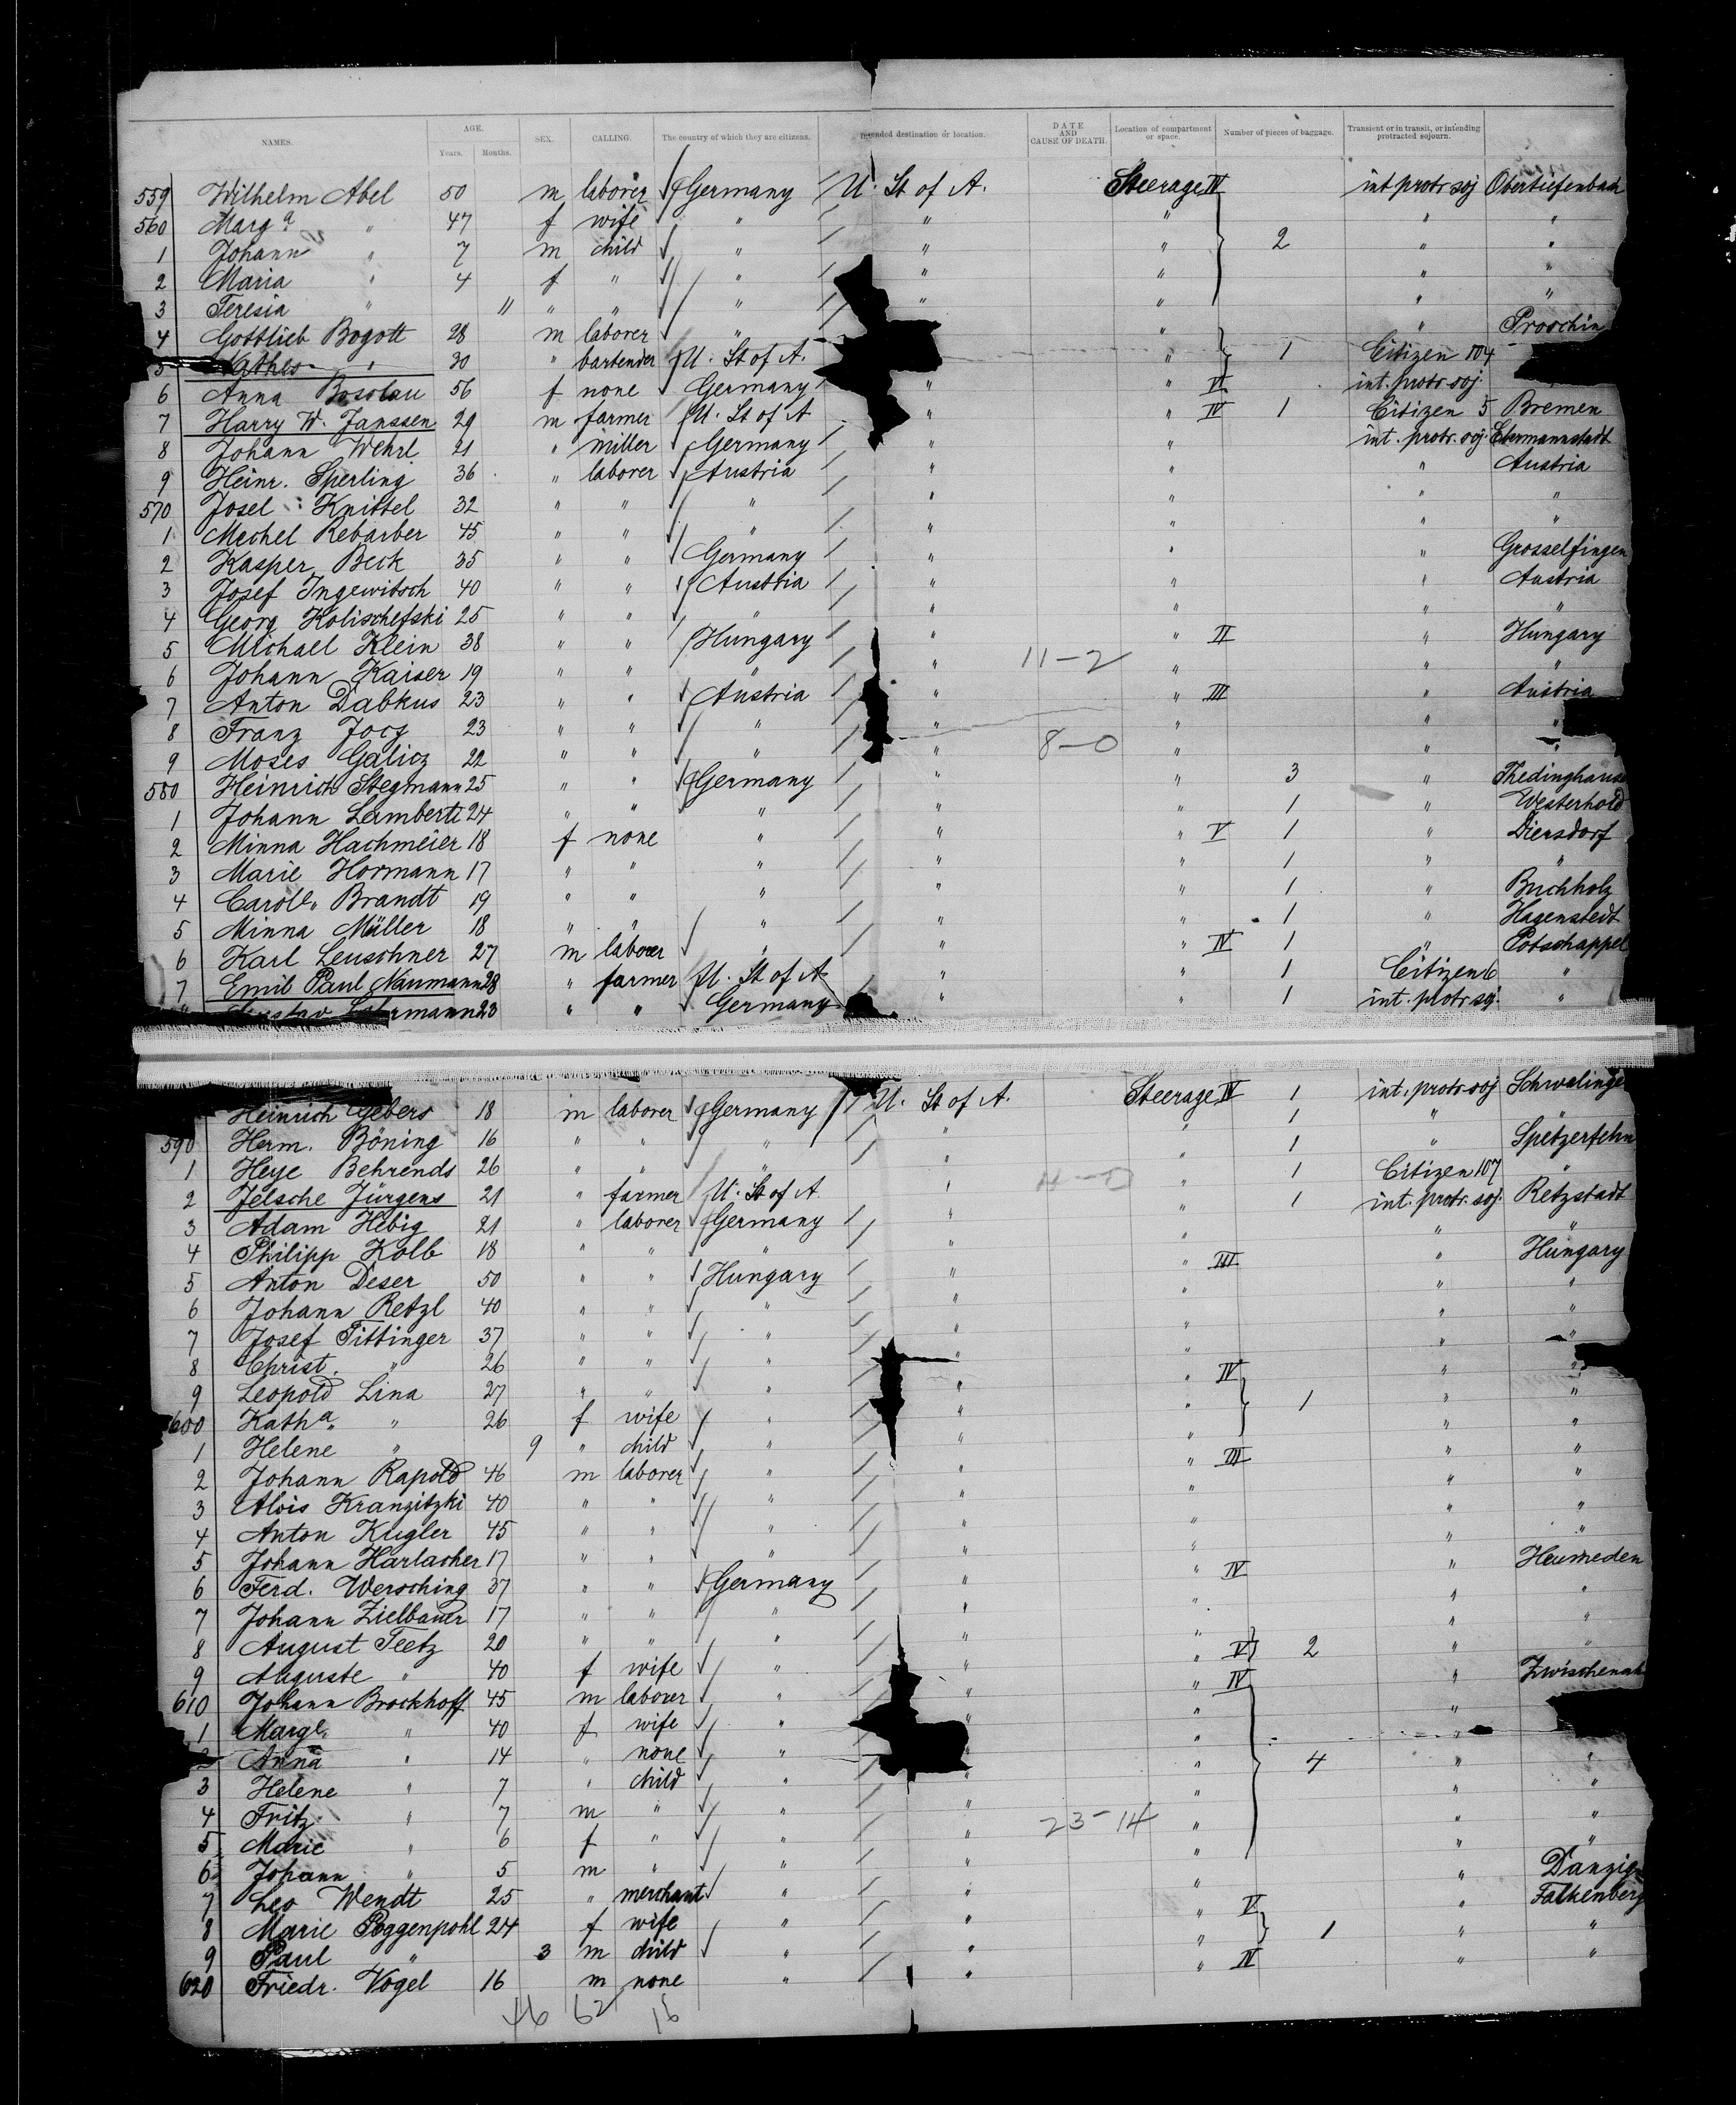 NAMES. AGE. Years. Months. SEX. CALLING. The country of which they are citizens. Intended destination or location. DATE AND CAUSE OF DEATH. Location of compartment or space. Number of pieces of baggage. Transient or in transit, or intending protracted sojourn.
559 Wilhelm Abel 50 m laborer Germany U. St of A. Steerage IV int protr soj Obertiefenbach
560 Marga " 47 f wife " " " " "
1 Johann " 7 m child " " " 2 " "
2 Maria " 4 f " " " " " "
3 Teresia " 11 " " " " " " "
4 Gottlieb Bogott 28 m laborer " " " Prooschin
5 " 30 " bartender U. St of A. " 1 Citizen 104
6 Anna 56 f none Germany " " V int. protr soj.
7 Harry W. Janssen 29 m farmer U. St of A " " IV 1 Citizen 5 Bremen
8 Johann Wehrl 21 " miller Germany " " int. protr. soj. Ebermannstadt
9 Heinr. Sperling 36 " laborer Austria " " " Austria
570 Josel Knittel 32 " " " " " " "
1 Mechel Rebarber 45 " " " " " " "
2 Kasper Beck 35 " " Germany " " " Grosselfingen
3 Josef Ingewitsch 40 " " Austria " " " Austria
4 Georg Kolischefski 25 " " " " " " "
5 Michael Klein 38 " " Hungary " " II " Hungary
6 Johann Kaiser 19 " " " " 11-2 " " "
7 Anton Dabkus 23 " " Austria " " III " Austria
8 Franz Jocz 23 " " " " " " "
9 Moses Galicz 22 " " " " 8-0 " " "
580 Heinrich Stegmann 25 " " Germany " " 3 " Thedinghause
1 Johann Lemberti 24 " " " " " 1 " Westerhold
2 Minna Hachmeier 18 f none " " " V 1 " Diersdorf
3 Marie Hormann 17 " " " " " 1 " "
4 Caroll. Brandt 19 " " " " " 1 " Buchholz
5 Minna Müller 18 " " " " " 1 " Hagenstedt
6 Karl Leuschner 27 m laborer " " " IV 1 " Potschappel
7 Emil Paul Naumann 28 " farmer U. St of A " " 1 Citizen 6 "
Gustav 23 " " Germany " " 1 int. protr soj. "
Heinrich Gebers 18 m laborer Germany U. St of A. Steerage IV 1 int. protr soj Schwalinge
590 Herm. Böning 16 " " " " " 1 "
1 Heye Behrends 26 " " " " " 1 " Spetzerfehn
2 Jelsche Jürgens 21 " farmer U. St of A " " 1 Citizen 107 "
3 Adam Hebig 21 " laborer Germany " " 1 int. protr. soj. Retzstadt
4 Philipp Kolb 18 " " " " " " "
5 Anton Deser 50 " " Hungary " " III " Hungary
6 Johann Retzl 40 " " " " " " "
7 Josef Tittinger 37 " " " " " " "
8 Christ. " 26 " " " " " " "
9 Leopold Lina 27 " " " " " IV " "
600 Katha. " 26 f wife " " " 1 " "
1 Helene " 9 " child " " " " "
2 Johann Rapold 46 m laborer " " " III " "
3 Alois Kranzitzki 40 " " " " " " "
4 Anton Kugler 45 " " " " " " "
5 Johann Harlacher 17 " " " " " " "
6 Ferd. Wersching 37 " " Germany " " IV " Heumeden
7 Johann Zielbauer 17 " " " " " " "
8 August Teetz 20 " " " " " " "
9 Auguste " 40 f wife " " " V 2 " "
610 Johann Brockhoff 45 m laborer " " " IV " Zwischenah
1 Marge. " 40 f wife " " " "
2 Anna " 14 " none " " " "
3 Helene " 7 " child " " " 4 " "
4 Fritz " 7 m " " " " " "
5 Marie " 6 f " " " 23-14 " " "
6 Johann " 5 m " " " " " "
7 Leo Wendt 25 " merchant " " " " Danzig
8 Marie Poggenpohl 24 f wife " " " V " Falkenberg
9 Paul " 3 m child " " " 1 " "
620 Friedr. Vogel 16 m none " " " IV " "
46 62 16